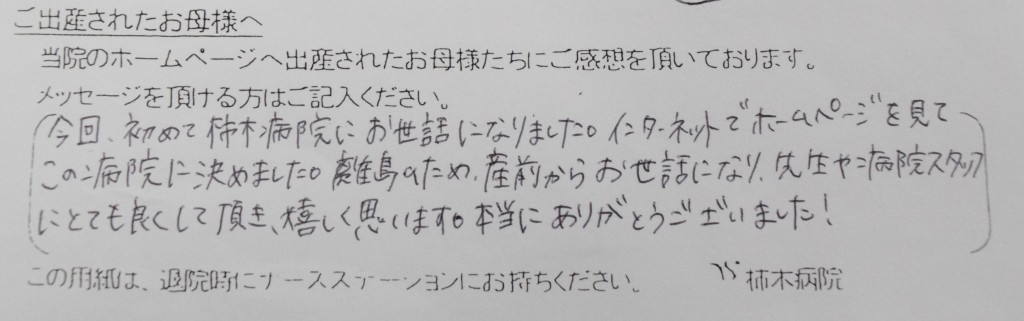 ご出産されたお母様へ
当院のホームページへ出産されたお母様たちにご感想を頂いております。
メッセージを頂ける方はご記入ください。
今回、初めて柿木病院にお世話になりました。インターネットでホームページを見て
この病院に決めました。離島のため、産前からお世話になり、先生や病院スタッフ
にとても良くして頂き、嬉しく思います。本当にありがとうございました!
この用紙は、退院時にナースステーションにお持ちください。 柿木病院